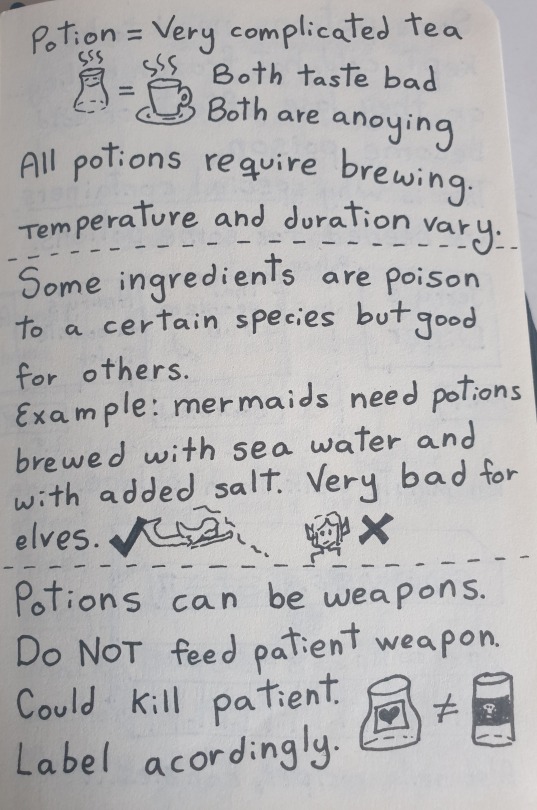 Potion = Very complicated tea
sss sss
= Both taste bad
Both are anoying
All potions require brewing.
Temperature and duration vary.
Some ingredients are poison
to a certain species but good
for others.
Example: mermaids need potions
brewed with sea water and
with added salt. Very bad for
elves.
Potions can be weapons.
Do NOT feed patient weapon.
Could kill patient.
≠
Label acordingly.